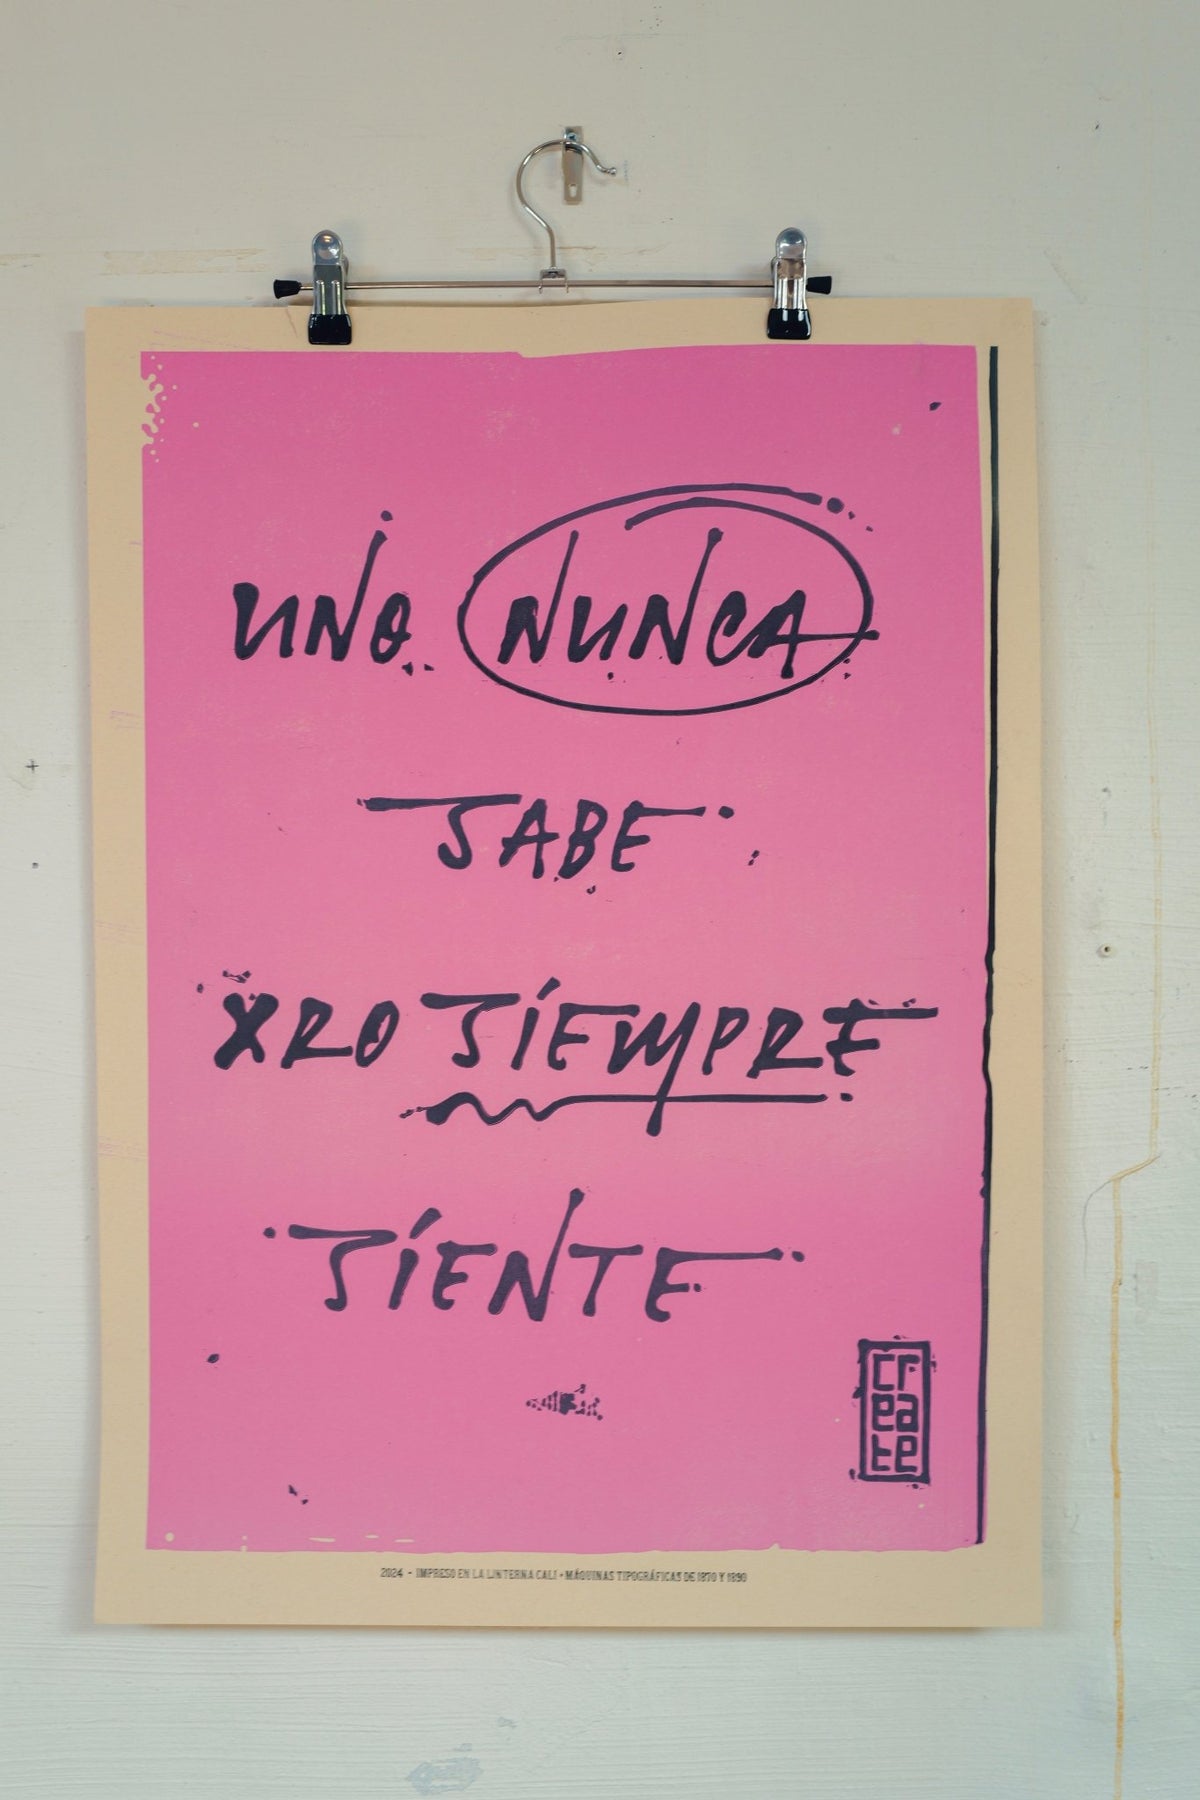 UNO NUNCA
SABE
XRO SIEMPRE
SIENTE
cr
ea
te
2024 - IMPRESO EN LA LINTERNA CALI - MÁQUINAS TIPOGRÁFICAS DE 1870 Y 1890